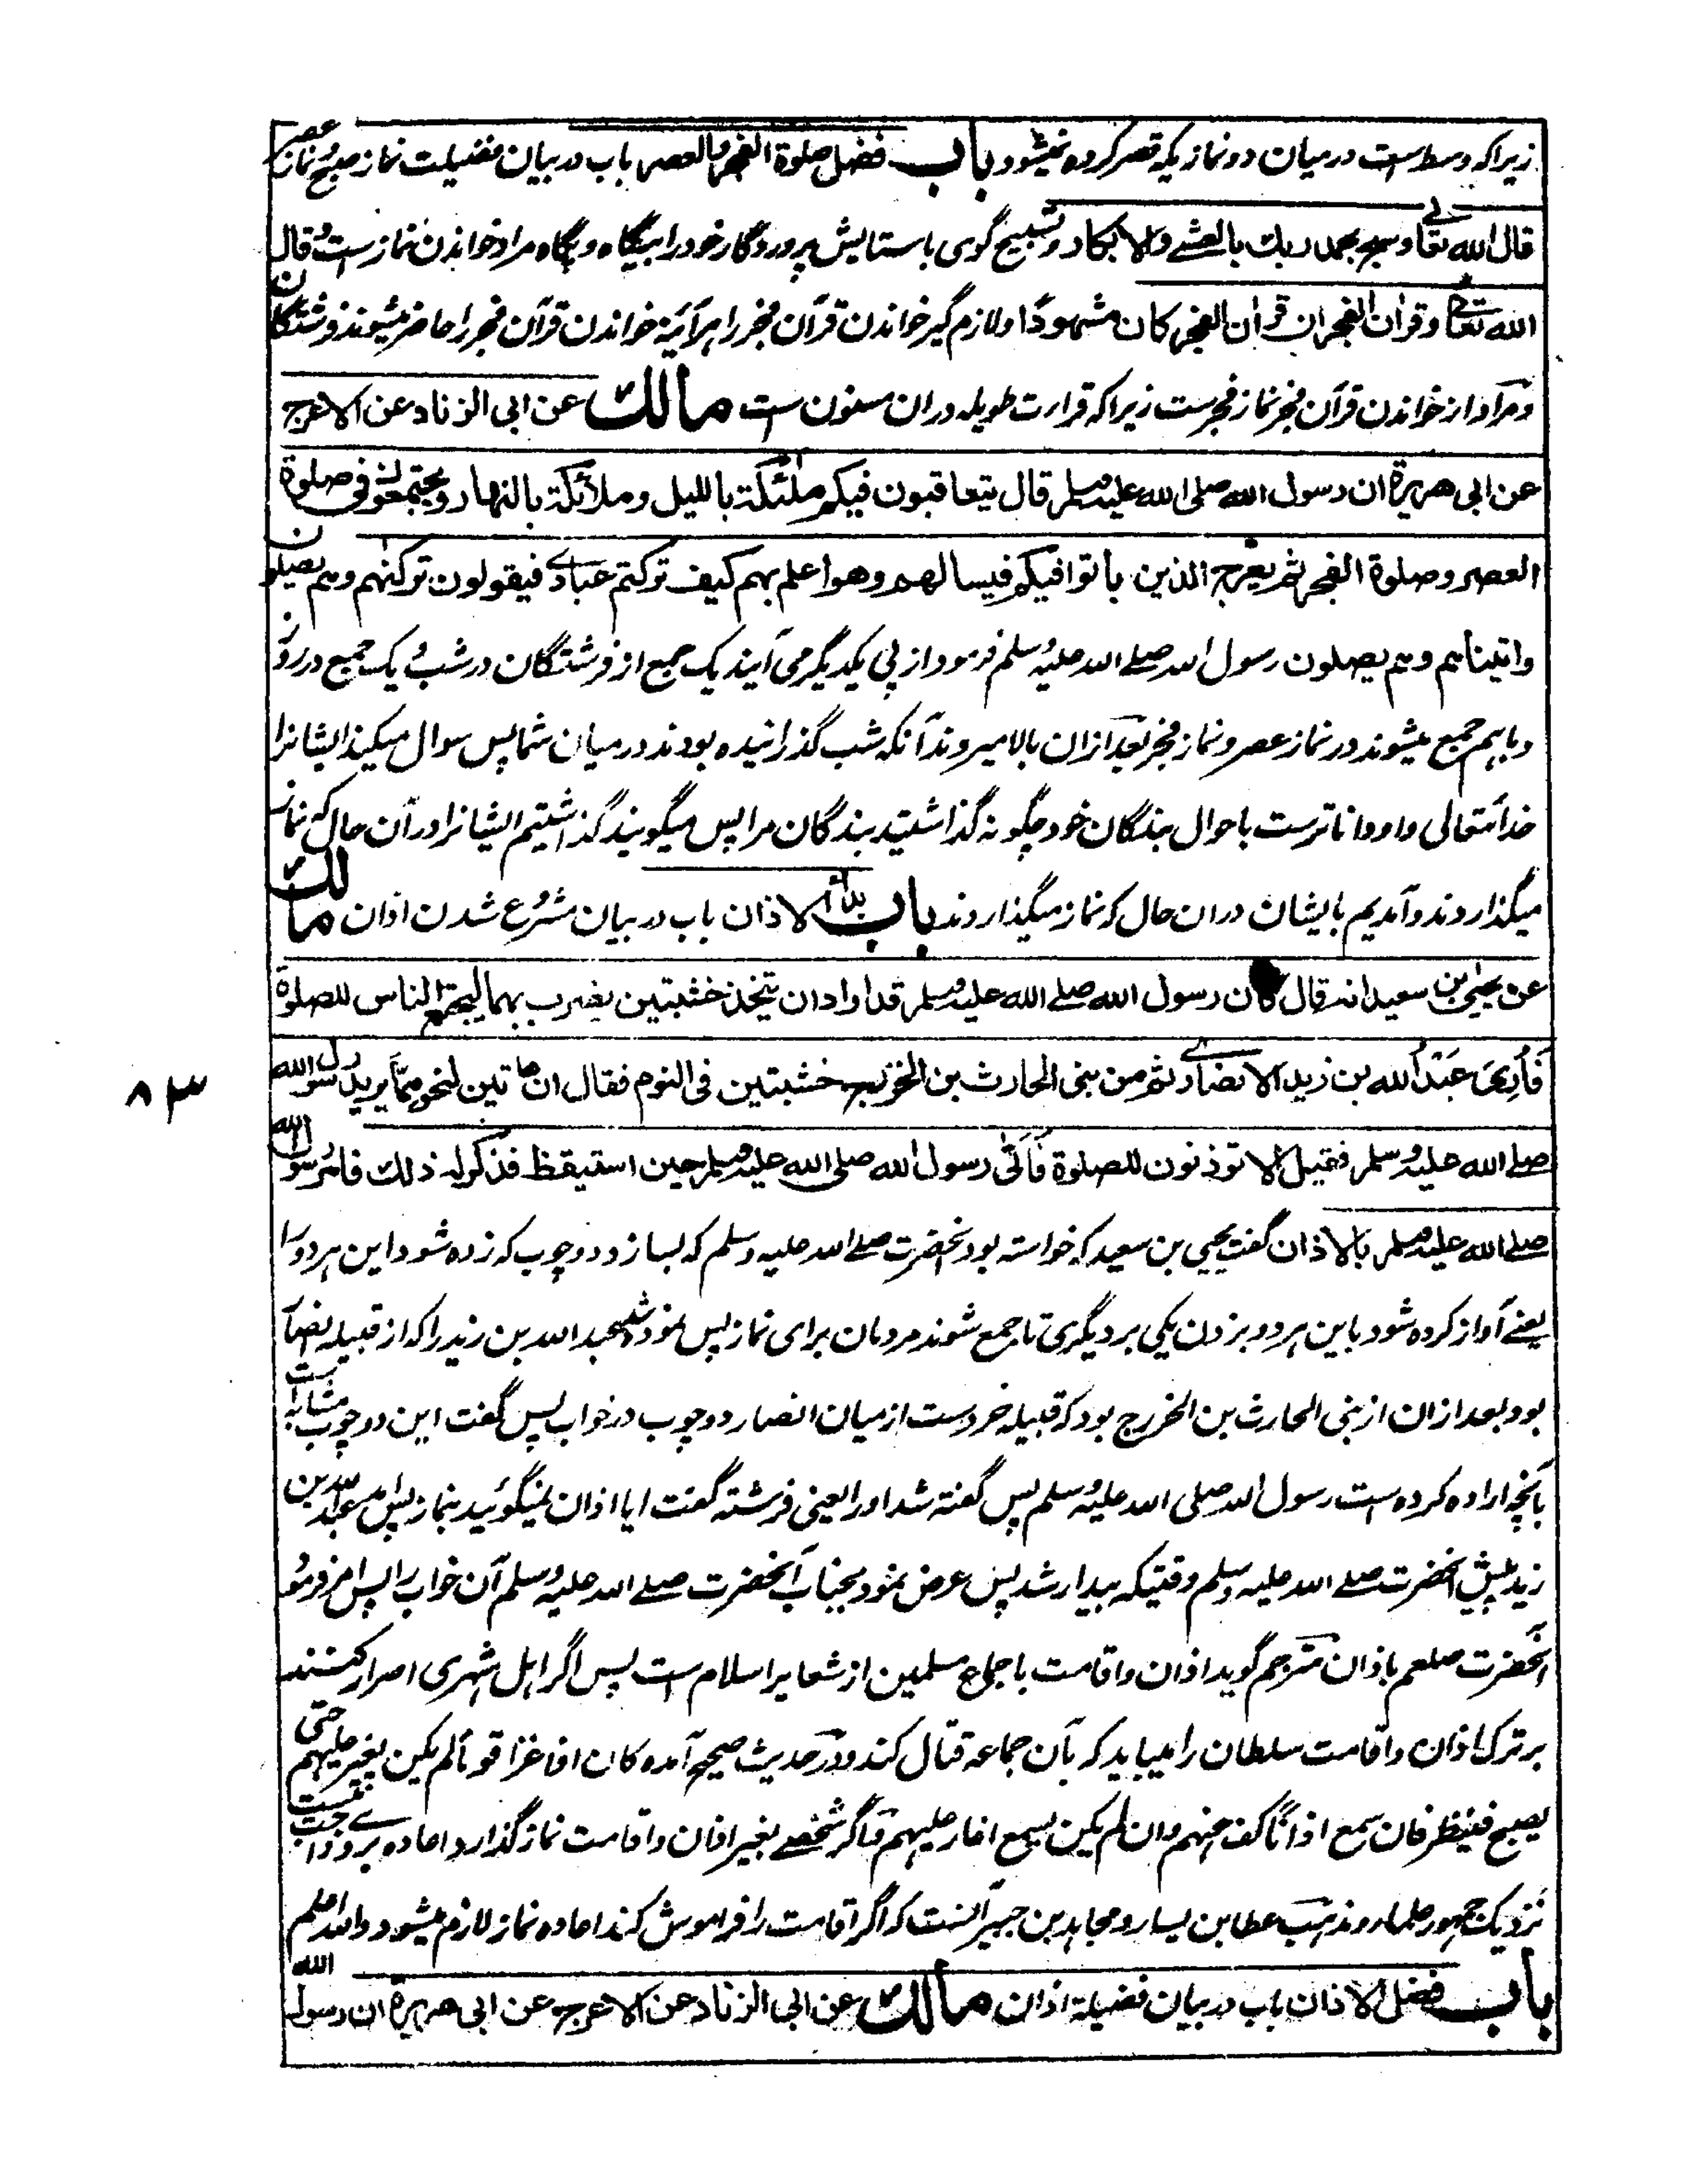 زیرا که وسط است درمیان دو نماز یکه قصر کرده نمیشود باب فضل صلوة الفجر والعصر باب در بیان فضیلت نماز صبح و نماز عصر
قال الله تعالی وسبح بحمد ربك بالعشی والابکار و تسبیح گوی با ستایش پروردگار خود را بیگاه و پگاه مراد خواندن نماز ست و قال
الله تعالی وقران الفجر ان قران الفجر کان مشهودا و لازم گیر خواندن قرآن فجر را هر آئینه خواندن قرآن فجر را حاضر میشوند فرشتگان
و مراد از خواندن قرآن فجر نماز فجرست زیرا که قرارت طویله دران مسنون ست مالك عن ابی الزناد عن الاعرج
عن ابی هریرة ان رسول الله صلی الله علیه وسلم قال یتعاقبون فیکم ملئکة باللیل وملائکة بالنهار ویجتمعون فی صلوة
العصر وصلوة الفجر ثم یعرج الذین باتوا فیکم فیسالهم وهو اعلم بهم کیف ترکتم عبادی فیقولون ترکنهم وهم یصلون
واتیناهم وهم یصلون رسول الله صلے الله علیه وسلم فرمود از پی یکدیگر می آیند یک جمع از فرشتگان در شب و یک جمع در روز
و باہم جمع میشوند در نماز عصر و نماز فجر بعد ازان بالا میروند آنانکه شب گذرانیده بودند درمیان شما پس سوال میکند ایشانرا
خدایتعالی و او دانا ترست باحوال بندگان خود چگونه گذاشتید بندگان مرا پس میگویند گذاشتیم ایشانرا در آن حال که نماز
میگذاردند و آمدیم بایشان دران حال که نماز میگذاردند باب بدأ الاذان باب در بیان مشروع شدن اذان مالك
عن یحیی بن سعید انه قال کان رسول الله صلے الله علیه وسلم قد اراد ان یتخذ خشبتین یضرب بهما لیجتمع الناس للصلوة
فَاُرِیَ عَبْدُ الله بن زید الانصاری ثم من بنی الحارث بن الخزرج خشبتین فی النوم فقال ان هاتین لنحو مما یرید رسول الله
صلے الله علیه وسلم فقیل الا توذنون للصلوة فَاَتٰی رسول الله صلی الله علیه وسلم حین استیقظ فذکر له ذلك فامر رسول الله
صلے الله علیه وسلم بالاذان گفت یحیی بن سعید که خواسته بود آنحضرت صلے الله علیه وسلم که بسازد دو چوب که زده شود این ہر دو را
یعنے آواز کرده شود باین ہر دو بزدن یکی بر دیگری تا جمع شوند مردمان برای نماز پس نموده شد عبد الله بن زید را که از قبیله انصار
بود بعد ازان از بنی الحارث بن الخزرج بود که قبیله خردست از میان انصار دو چوب در خواب پس گفت این دو چوب مشابه است
بآنچه اراده کرده است رسول الله صلی الله علیه وسلم پس گفته شد اورا یعنی فرشته گفت ایا اذان نمیگوئید بنماز پس آمد عبد الله بن
زید پیش آنحضرت صلے الله علیه وسلم وقتیکه بیدار شد پس عرض نمود بجناب آنحضرت صلے الله علیه وسلم آن خواب را پس امر فرمود
آنحضرت صلعم باذان مترجم گوید اذان و اقامت باجماع مسلمین از شعایر اسلام ست پس اگر اہل شهری اصرار کنند
بر ترک اذان و اقامت سلطان را میباید که بآن جماعه قتال کند و در حدیث صحیح آمده کان اذا غزا قوما لم یکن یغیر علیهم حتی
یصبح فینظر فان سمع اذانا کف عنهم وان لم یکن یسمع اغار علیهم و اگر شخصے بغیر اذان و اقامت نماز گذارد اعاده بر وے واجب نیست
نزدیک جمهور علمار و مذہب عطا بن یسار و مجاہد بن جبیر آنست که اگر اقامت را فراموش کند اعاده نماز لازم میشود والله اعلم
باب فضل الاذان باب در بیان فضیلة اذان مالك عن ابی الزناد عن الاعرج عن ابی هریرة ان رسول الله
۸۳